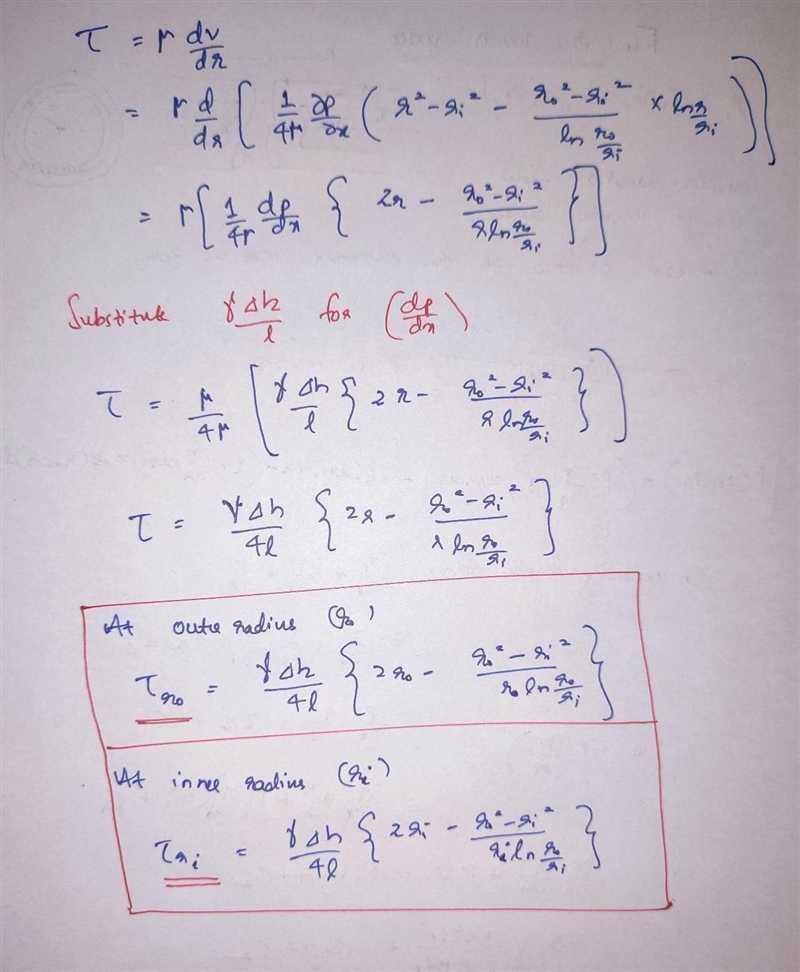 τ = μ dv/dr
= μ d/dr [ 1/4μ ∂p/∂x ( r² - ri² - (ro² - ri²)/(ln ro/ri) × ln r/ri ) ]
= μ [ 1/4μ dp/dx { 2r - (ro² - ri²)/(r ln ro/ri) } ]
Substitute γΔh/l for (dp/dx)
τ = μ/4μ [ γΔh/l { 2r - (ro² - ri²)/(r ln ro/ri) } ]
τ = γΔh/4l { 2r - (ro² - ri²)/(r ln ro/ri) }
At oute radius (ro)
τro = γΔh/4l { 2ro - (ro² - ri²)/(ro ln ro/ri) }
At inner radius (ri)
τri = γΔh/4l { 2ri - (ro² - ri²)/(ri ln ro/ri) }